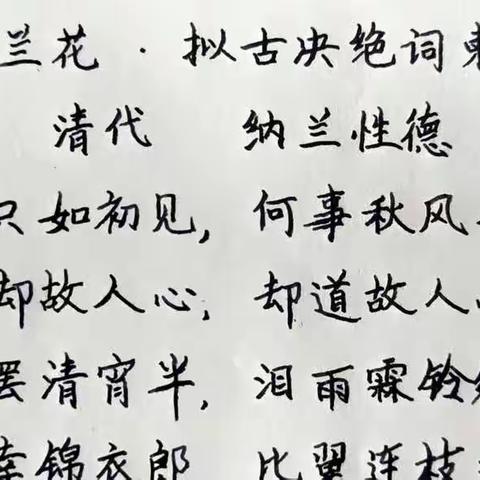 兰花·拟古决绝词柬
清代 纳兰性德
只如初见，何事秋风
却故人心，却道故人
罢清宵半，泪雨霖铃
锦衣郎 比翼连枝